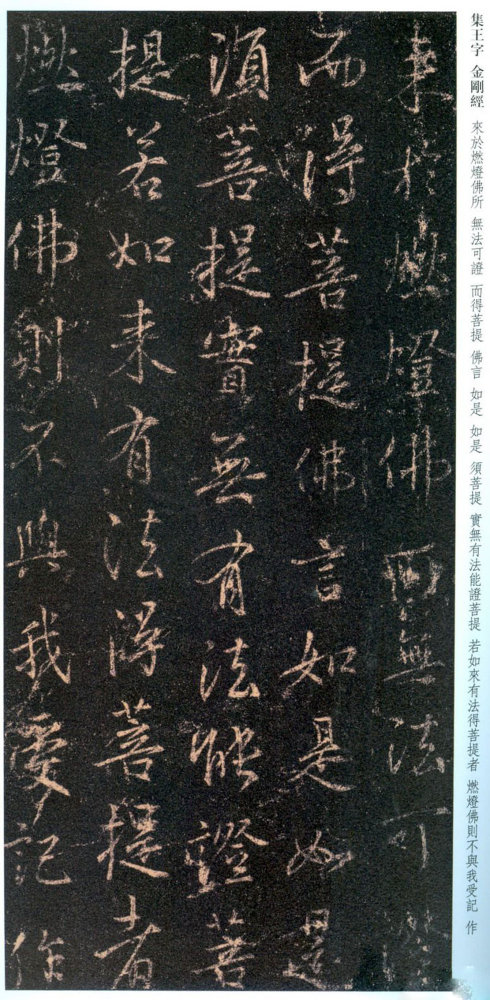 集王字 金剛經 來於燃燈佛所 無法可證 而得菩提 佛言 如是 如是 須菩提 實無有法能證菩提 若如來有法得菩提者 燃燈佛則不與我受記 作
來於燃燈佛所無法可證
而得菩提佛言如是如是
須菩提實無有法能證菩
提若如來有法得菩提者
燃燈佛則不與我受記作